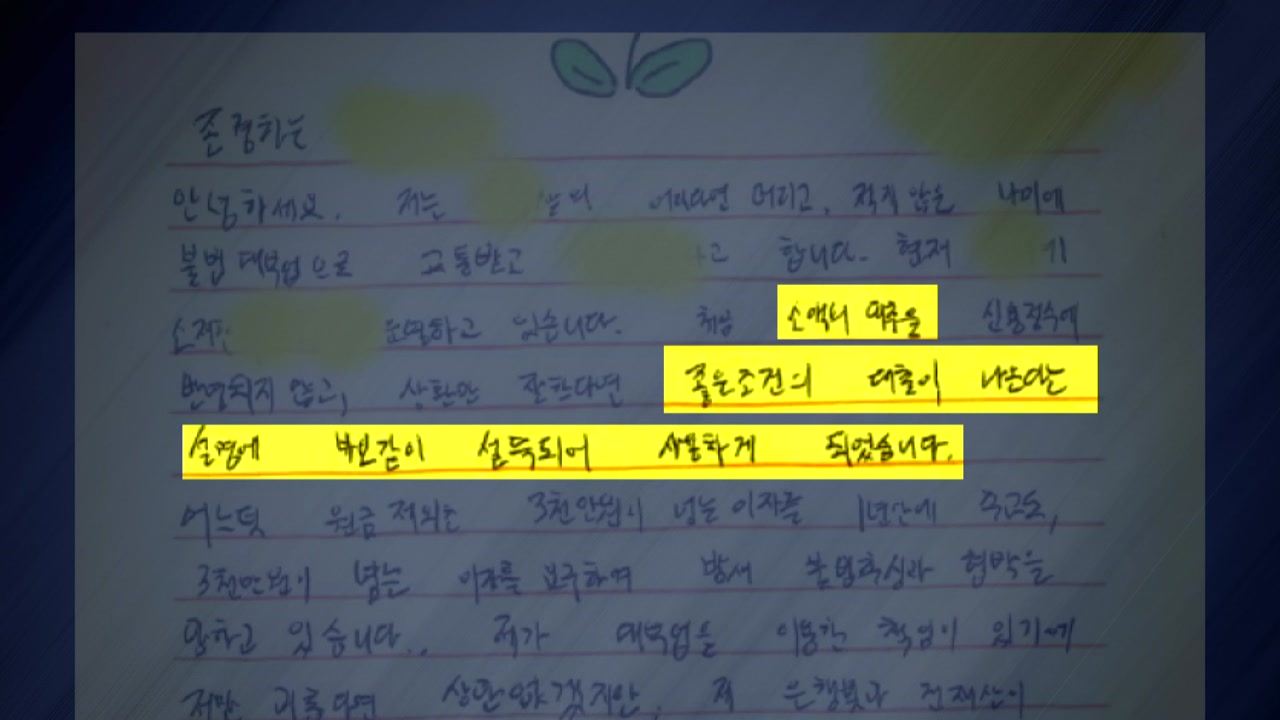 존경하는
안녕하세요. 저는 머리고, 적지 않은 나이에
불법 대부업으로 고통받고 합니다. 현재
운영하고 있습니다. 처음 소액의 대출은 신용점수에
반영되지 않고, 상환만 잘한다면 좋은조건의 대출이 나온다는
설명에 바보같이 설득되어 사용하게 되었습니다.
어느덧 원금 제외한 3천만원이 넘는 이자를 1년간에 주고도,
3천만원이 넘는 이자를 요구하며 밤새 불법추심과 협박을
당하고 있습니다.. 제가 대부업을 이용한 책임이 있기에
저만 괴롭다면 상관없겠지만, 제 은행빚과 전재산이